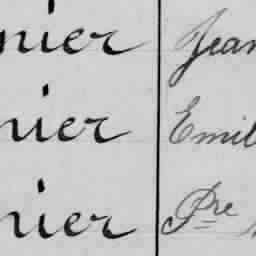 nier Jean
nier Emil
nier Pre